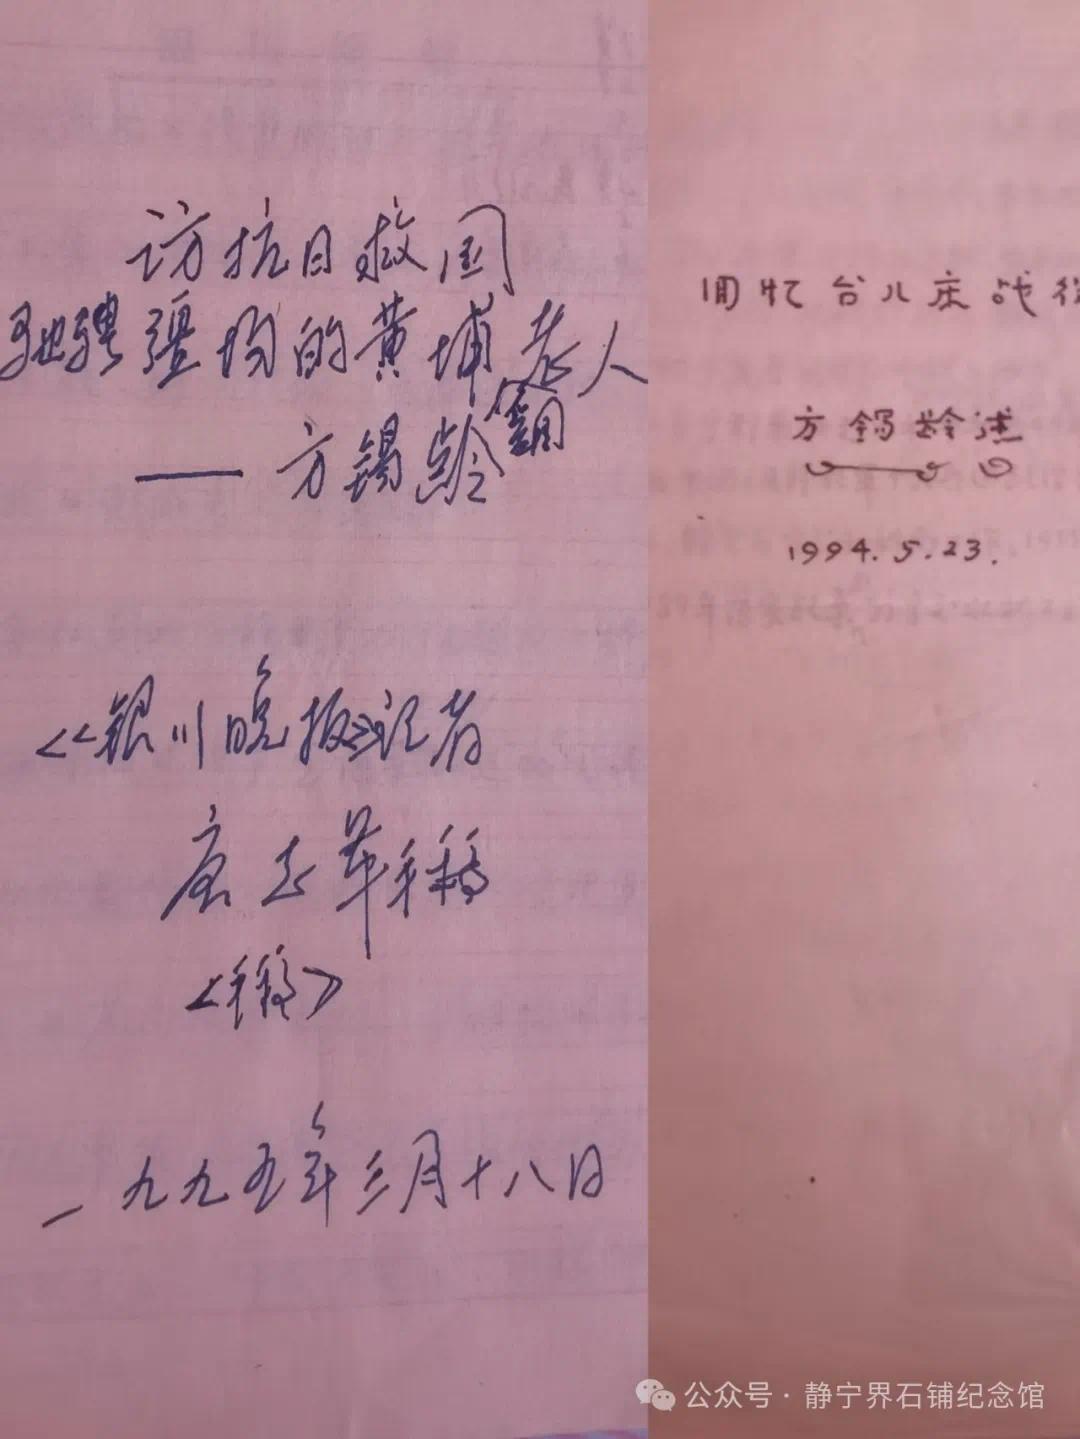 访抗日救国
驰骋疆场的黄埔老人
——方锡龄
《银川晚报》记者
唐志草稿
<稿>
一九九五年三月十八日
回忆台儿庄战役
方锡龄述
1994.5.23.
公众号·静宁界石铺纪念馆